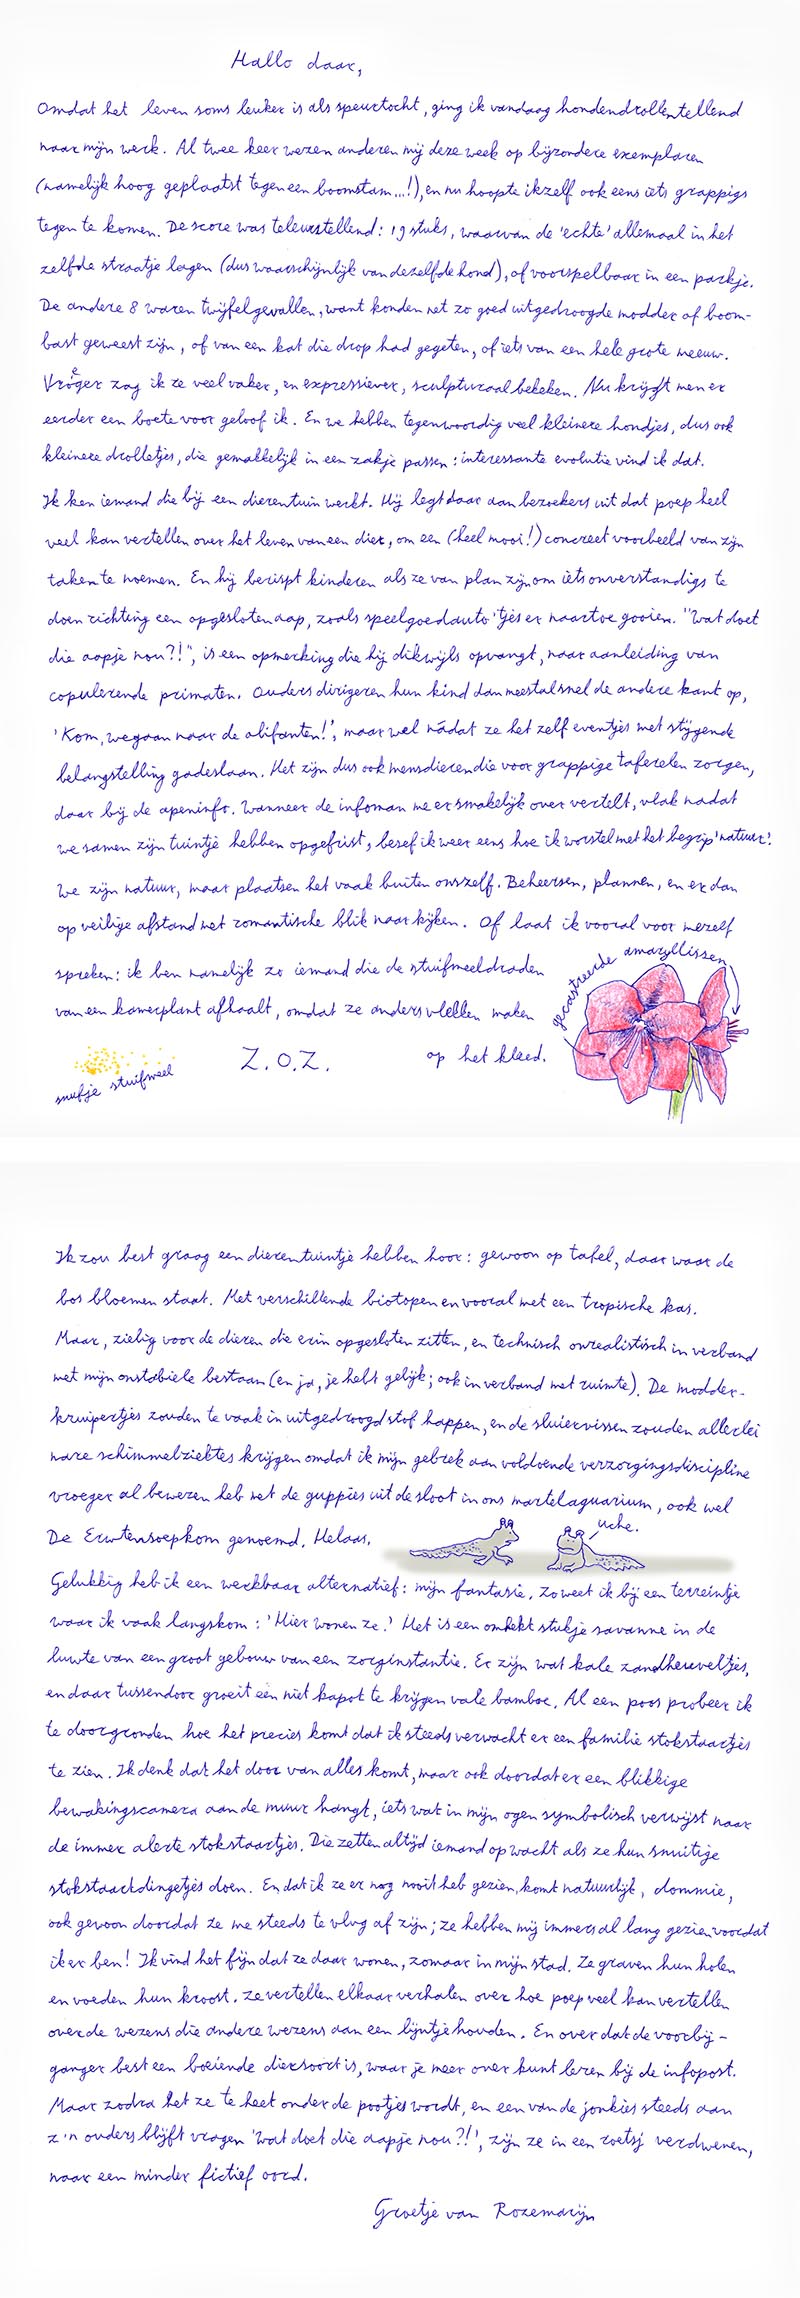 Hallo daar,
Omdat het leven soms leuker is als speurtocht, ging ik vandaag hondendrollentellend
naar mijn werk. Al twee keer wezen anderen mij deze week op bijzondere exemplaren
(namelijk hoog geplaatst tegen een boomstam...!), en nu hoopte ikzelf ook eens iets grappigs
tegen te komen. De score was teleurstellend: 19 stuks, waarvan de 'echte' allemaal in het
zelfde straatje lagen (dus waarschijnlijk van dezelfde hond), of voorspelbaar in een parkje.
De andere 8 waren twijfelgevallen, want konden net zo goed uitgedroogde modder of boom-
bast geweest zijn, of van een kat die drop had gegeten, of iets van een hele grote meeuw.
Vroeger zag ik ze veel vaker, en expressiever, sculpturaal bekeken. Nu krijgt men er
eerder een boete voor geloof ik. En we hebben tegenwoordig veel kleinere hondjes, dus ook
kleinere drolletjes, die gemakkelijk in een zakje passen: interessante evolutie vind ik dat.
Ik ken iemand die bij een dierentuin werkt. Hij legt daar aan bezoekers uit dat poep heel
veel kan vertellen over het leven van een dier, om een (heel mooi!) concreet voorbeeld van zijn
taken te noemen. En hij berispt kinderen als ze van plan zijn om iets onverstandigs te
doen richting een opgesloten aap, zoals speelgoedauto'tjes er naartoe gooien. "Wat doet
die aapje nou?!", is een opmerking die hij dikwijls opvangt, naar aanleiding van
copulerende primaten. Ouders dirigeren hun kind dan meestal snel de andere kant op,
'Kom, we gaan naar de olifanten!', maar wel nádat ze het zelf eventjes met stijgende
belangstelling gadeslaan. Het zijn dus ook mensdieren die voor grappige taferelen zorgen,
daar bij de apeninfo. Wanneer de infoman me er smakelijk over vertelt, vlak nadat
we samen zijn tuintje hebben opgefrist, besef ik weer eens hoe ik worstel met het begrip 'natuur'.
We zijn natuur, maar plaatsen het vaak buiten onszelf. Beheersen, plannen, en er dan
op veilige afstand met romantische blik naar kijken. Of laat ik vooral voor mezelf
spreken: ik ben namelijk zo iemand die de stuifmeeldraden
van een kamerplant afhaalt, omdat ze anders vlekken maken
op het kleed.
gecastreerde amaryllissen
snufje stuifmeel
Z.O.Z.
Ik zou best graag een dierentuintje hebben hoor: gewoon op tafel, daar waar de
bos bloemen staat. Met verschillende biotopen en vooral met een tropische kas.
Maar, zielig voor de dieren die erin opgesloten zitten, en technisch onrealistisch in verband
met mijn onstabiele bestaan (en ja, je hebt gelijk; ook in verband met ruimte). De modder-
kruipertjes zouden te vaak in uitgedroogd stof happen, en de sluiervissen zouden allerlei
nare schimmelziektes krijgen omdat ik mijn gebrek aan voldoende verzorgingsdiscipline
vroeger al bewezen heb met de guppies uit de sloot in ons martelaquarium, ook wel
De Erwtensoepkom genoemd. Helaas.
uche.
Gelukkig heb ik een werkbaar alternatief: mijn fantasie. Zo weet ik bij een terreintje
waar ik vaak langskom: 'Hier wonen ze.' Het is een omhekt stukje savanne in de
luwte van een groot gebouw van een zorginstantie. Er zijn wat kale zandheuveltjes,
en daar tussendoor groeit een niet kapot te krijgen vale bamboe. Al een poos probeer ik
te doorgronden hoe het precies komt dat ik steeds verwacht er een familie stokstaartjes
te zien. Ik denk dat het door van alles komt, maar ook doordat er een blikkige
bewakingscamera aan de muur hangt, iets wat in mijn ogen symbolisch verwijst naar
de immer alerte stokstaartjes. Die zetten altijd iemand op wacht als ze hun snuitige
stokstaartdingetjes doen. En dat ik ze er nog nooit heb gezien, komt natuurlijk, dommie,
ook gewoon doordat ze me steeds te vlug af zijn; ze hebben mij immers al lang gezien voordat
ik er ben! Ik vind het fijn dat ze daar wonen, zomaar in mijn stad. Ze graven hun holen
en voeden hun kroost. Ze vertellen elkaar verhalen over hoe poep veel kan vertellen
over de wezens die andere wezens aan een lijntje houden. En over dat de voorbij-
ganger best een boeiende diersoort is, waar je meer over kunt leren bij de infopost.
Maar zodra het ze te heet onder de pootjes wordt, en een van de jonkies steeds aan
z'n ouders blijft vragen 'wat doet die aapje nou?!', zijn ze in een roetsj verdwenen,
naar een minder fictief oord.
Groetje van Rozemarijn